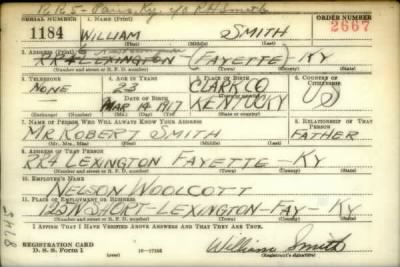 RR 5 - Paris, Ky. c/o R H Smith
SERIAL NUMBER 1. NAME (Print) ORDER NUMBER
1184 WILLIAM SMITH 2667
(First) (Middle) (Last)
2. ADDRESS (Print)
RR4 LEXINGTON (FAYETTE) KY
(Number and street or R. F. D. number) (Town) (County) (State)
3. TELEPHONE 4. AGE IN YEARS 5. PLACE OF BIRTH 6. COUNTRY OF CITIZENSHIP
NONE 23 CLARK CO U S
DATE OF BIRTH (Town or county)
MAR 14 1917 KENTUCKY
(Exchange) (Number) (Mo.) (Day) (Yr.) (State or country)
7. NAME OF PERSON WHO WILL ALWAYS KNOW YOUR ADDRESS 8. RELATIONSHIP OF THAT PERSON
MR. ROBERT SMITH FATHER
(Mr., Mrs., Miss) (First) (Middle) (Last)
9. ADDRESS OF THAT PERSON
RR4 LEXINGTON FAYETTE - KY
(Number and street or R. F. D. number) (Town) (County) (State)
10. EMPLOYER'S NAME
NELSON WOOLCOTT
11. PLACE OF EMPLOYMENT OR BUSINESS
125 N SHORT - LEXINGTON - FAY - KY
(Number and street or R. F. D. number) (Town) (County) (State)
I AFFIRM THAT I HAVE VERIFIED ABOVE ANSWERS AND THAT THEY ARE TRUE.
REGISTRATION CARD
D. S. S. Form 1 16—17105 William Smith